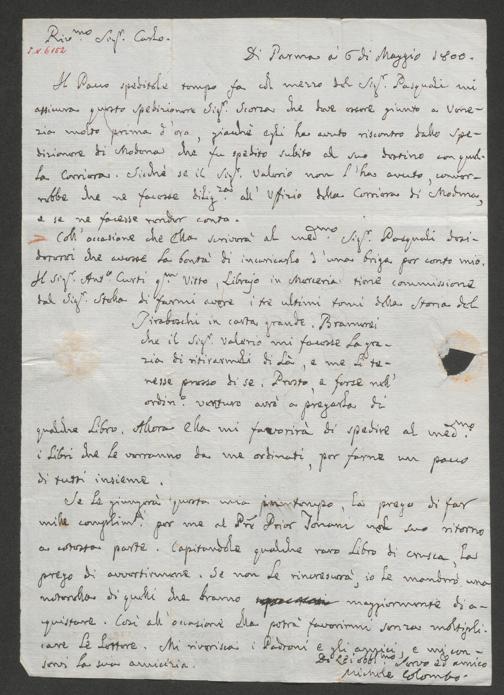 Riv.mo Sig.r Carlo.
P.V. 6152
Di Parma à 6 di Maggio 1800.
Il Pacco speditole tempo fa col mezzo del Sig.r Pasquali mi
assicura questo spedizionere Sig.r Scorza che deve essere giunto a Vene-
zia molto prima d'ora, giacchè egli ha avuto riscontro dallo Spe-
dizionere di Modena che fu spedito subito al suo destino con quel-
la Corriera. Sicchè se il Sig.r Valerio non l'ha avuto, conver-
rebbe che ne facesse dilig.za all'Uffizio della Corriera di Modena,
e se ne facesse render conto.
Coll'occasione che Ella scriverà al med.mo Sig.r Pasquali desi-
dererei che avesse la bontà d'incaricarlo d'una briga per conto mio.
Il Sig.r Ant.o Curti q.m Vitto, Librajo in Merceria tiene commissione
dal Sig.r Stella di farmi avere i tre ultimi tomi della Storia del
Tiraboschi in carta grande. Bramerei
che il Sig.r Valerio mi facesse la gra-
zia di ritirarmeli di là, e me li te-
nesse presso di se. Presto, e forse nell'
ordin.o venturo avrò a pregarla di
qualche Libro. Allora Ella mi favorirà di spedire al med.mo
i Libri che le verranno da me ordinati, per farne un pacco
di tutti insieme.
Se le giungerà questa mia in tempo, la prego di far
mille complim.ti per me al Prē Prior nel suo ritorno
a cotesta parte. Capitandole qualche raro Libro di Crusca, la
prego di avvertirmene. Se non le rincrescerà, io le manderò una
notarella di quelli che bramo maggiormente di a-
quistare. Così all'occasione Ella potrà favorirmi senza moltipli-
care le Lettere. Mi riverisca i Padroni e gli amici, e mi con-
servi la sua amicizia.
Di Lei obbl.mo Servo ed amico
Michele Colombo.